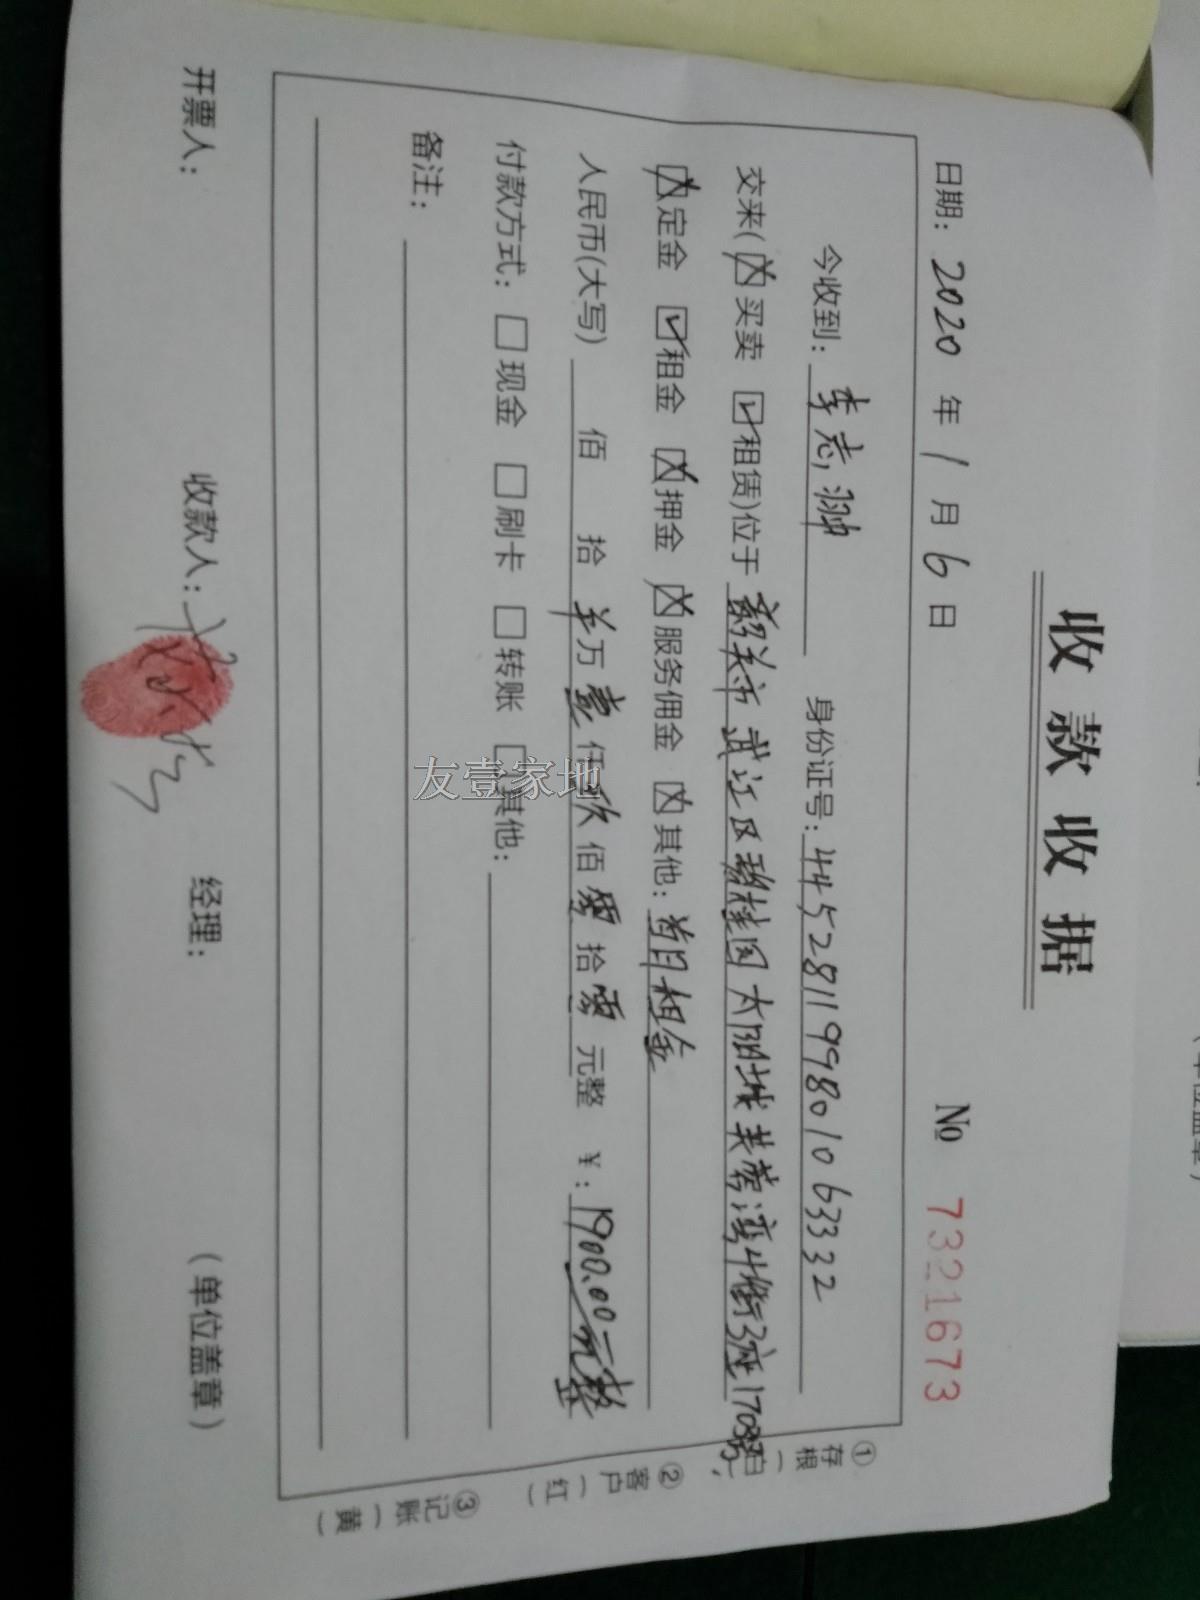 收款收据
日期: 2020 年 1 月 6 日 № 7321673
今收到: 李志翀 身份证号: 445281199801063332
交来(☒买卖 ☑租赁)位于 韶关市武江区碧桂园太阳城芙蓉湾4街3座1703
☒定金 ☑租金 ☒押金 ☒服务佣金 ☒其他: 首月租金
人民币(大写) 佰 拾 万 壹 仟 玖 佰 零 拾 零 元整 ¥: 1900.00元整
付款方式: □现金 □刷卡 □转账 □其他:
备注:
开票人: 收款人: 经理: (单位盖章)
①存根(白)
②客户(红)
③记账(黄)
友壹家地